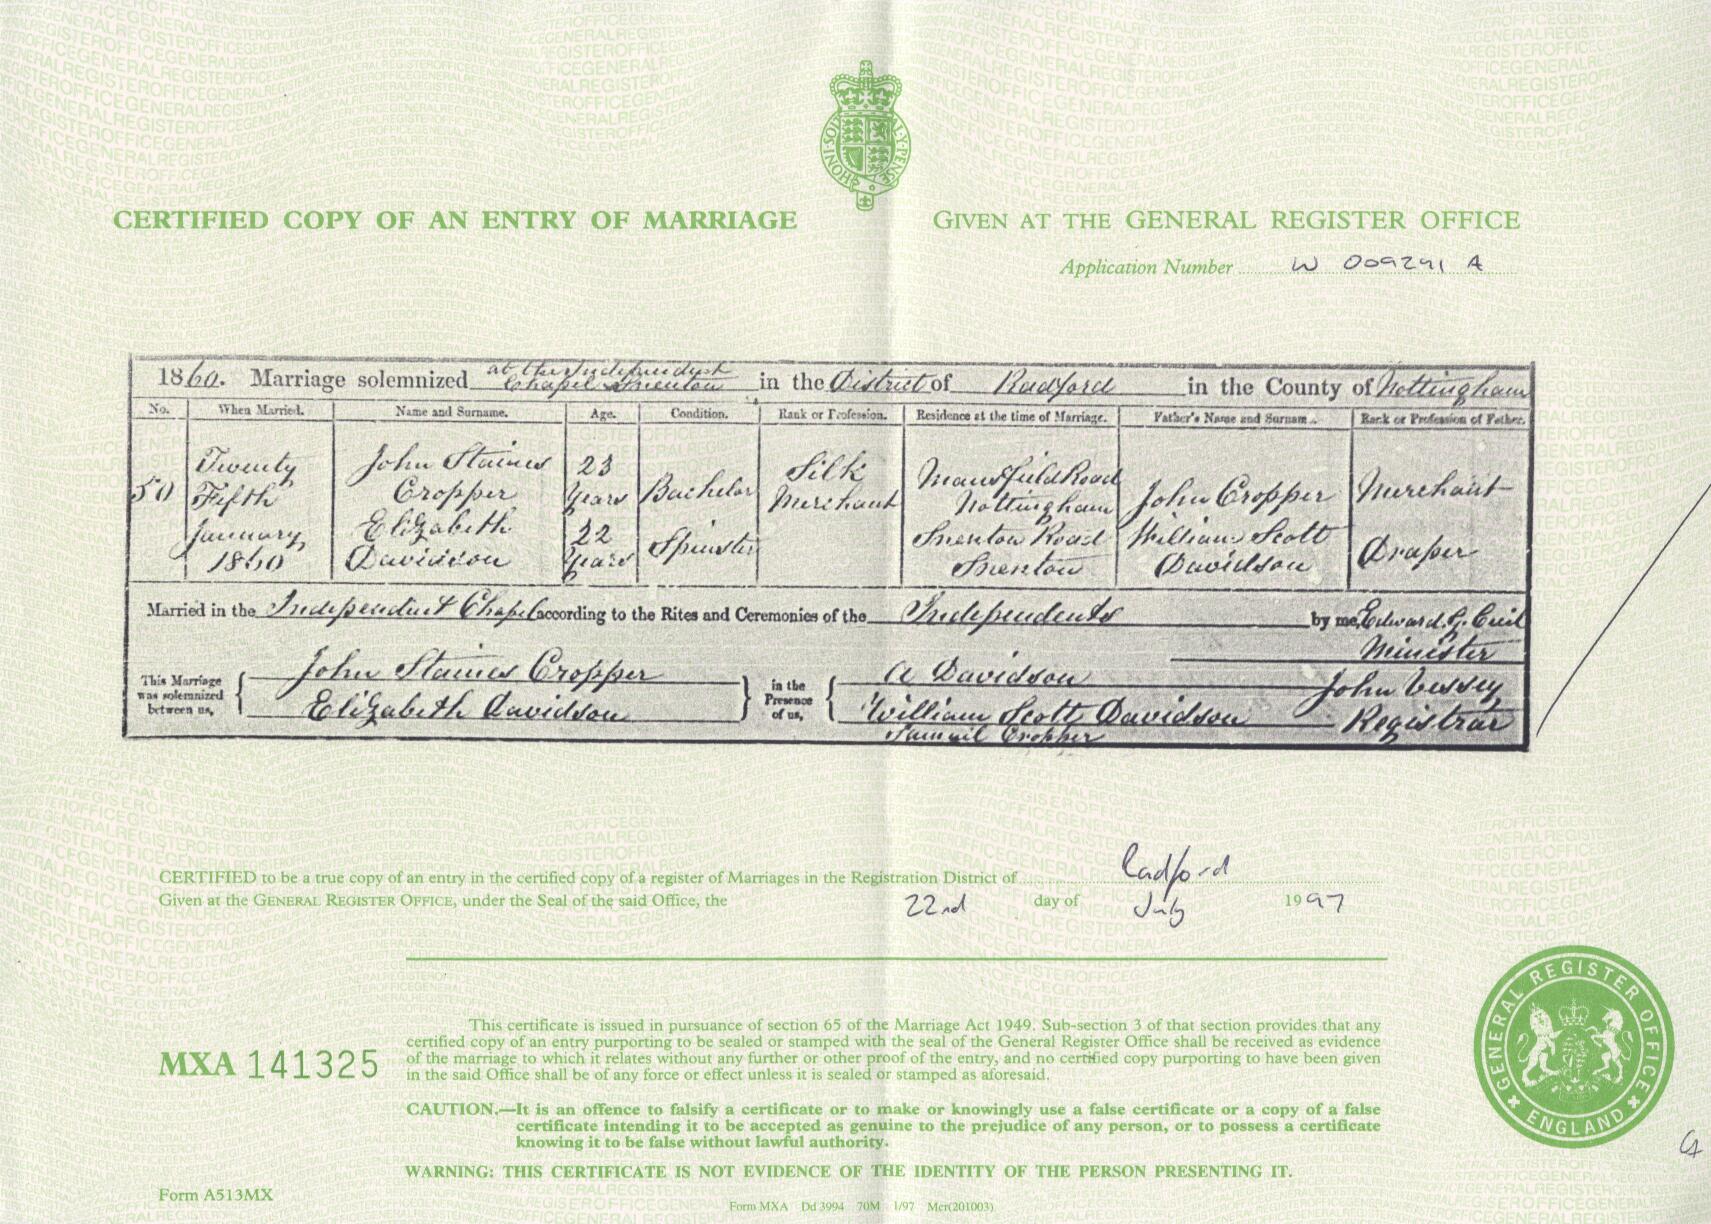 HONI·SOIT
Y·PENSE
CERTIFIED COPY OF AN ENTRY OF MARRIAGE
GIVEN AT THE GENERAL REGISTER OFFICE
Application Number W 009291 A
1860. Marriage solemnized at the Independent Chapel Snenton in the District of Radford in the County of Nottingham
No. When Married. Name and Surname. Age. Condition. Rank or Profession. Residence at the time of Marriage. Father's Name and Surname. Rank or Profession of Father.
50 Twenty Fifth January 1860
John Staines Cropper 23 Years Bachelor Silk Merchant Mansfield Road Nottingham John Cropper Merchant
Elizabeth Davidson 22 Years Spinster Snenton Road Snenton William Scott Davidson Draper
Married in the Independent Chapel according to the Rites and Ceremonies of the Independents by me, Edward G. Cecil
Minister
This Marriage was solemnized between us, { John Staines Cropper
Elizabeth Davidson } in the Presence of us, { A Davidson
William Scott Davidson
Samuel Cropper
John Vessey
Registrar
CERTIFIED to be a true copy of an entry in the certified copy of a register of Marriages in the Registration District of Radford
Given at the GENERAL REGISTER OFFICE, under the Seal of the said Office, the 22nd day of July 1997
This certificate is issued in pursuance of section 65 of the Marriage Act 1949. Sub-section 3 of that section provides that any
certified copy of an entry purporting to be sealed or stamped with the seal of the General Register Office shall be received as evidence
of the marriage to which it relates without any further or other proof of the entry, and no certified copy purporting to have been given
in the said Office shall be of any force or effect unless it is sealed or stamped as aforesaid.
MXA 141325
CAUTION.—It is an offence to falsify a certificate or to make or knowingly use a false certificate or a copy of a false
certificate intending it to be accepted as genuine to the prejudice of any person, or to possess a certificate
knowing it to be false without lawful authority.
WARNING: THIS CERTIFICATE IS NOT EVIDENCE OF THE IDENTITY OF THE PERSON PRESENTING IT.
GENERAL REGISTER OFFICE
ENGLAND
Form A513MX
Form MXA Dd 3994 70M 1/97 Mcr(201003)